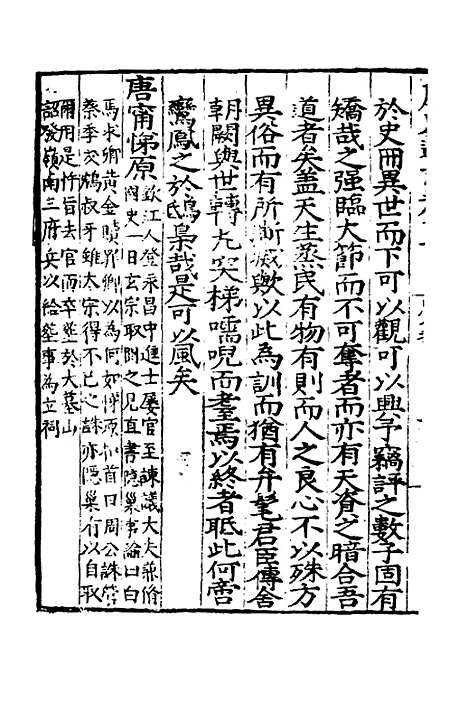 於史冊異世而下可以觀可以興予竊評之數子固有
矯哉之强臨大節而不可奪者而亦有天資之暗合吾
道者矣蓋天生蒸民有物有則而人之良心不以殊方
異俗而有所澌滅歟以此為訓而猶有弁髦君臣傳舍
朝闕與世轉丸突梯嚅唲而耋焉以終者眡此何啻
鸞鳳之於鴟梟哉是可以風矣
唐甯悌原
欽江人登永昌中進士屢官至諫議大夫兼脩
國史一日玄宗取閱之見直書隱巢事論曰白
馬求卿黃金贖罪卿以為何如悌原扣首曰周公誅管
蔡季友鴆叔牙雖大宗得不已之誅亦隱巢有以自取
爾用是忤旨去官而卒塟於大墓山
詔發嶺南三府兵以給塟事為立祠